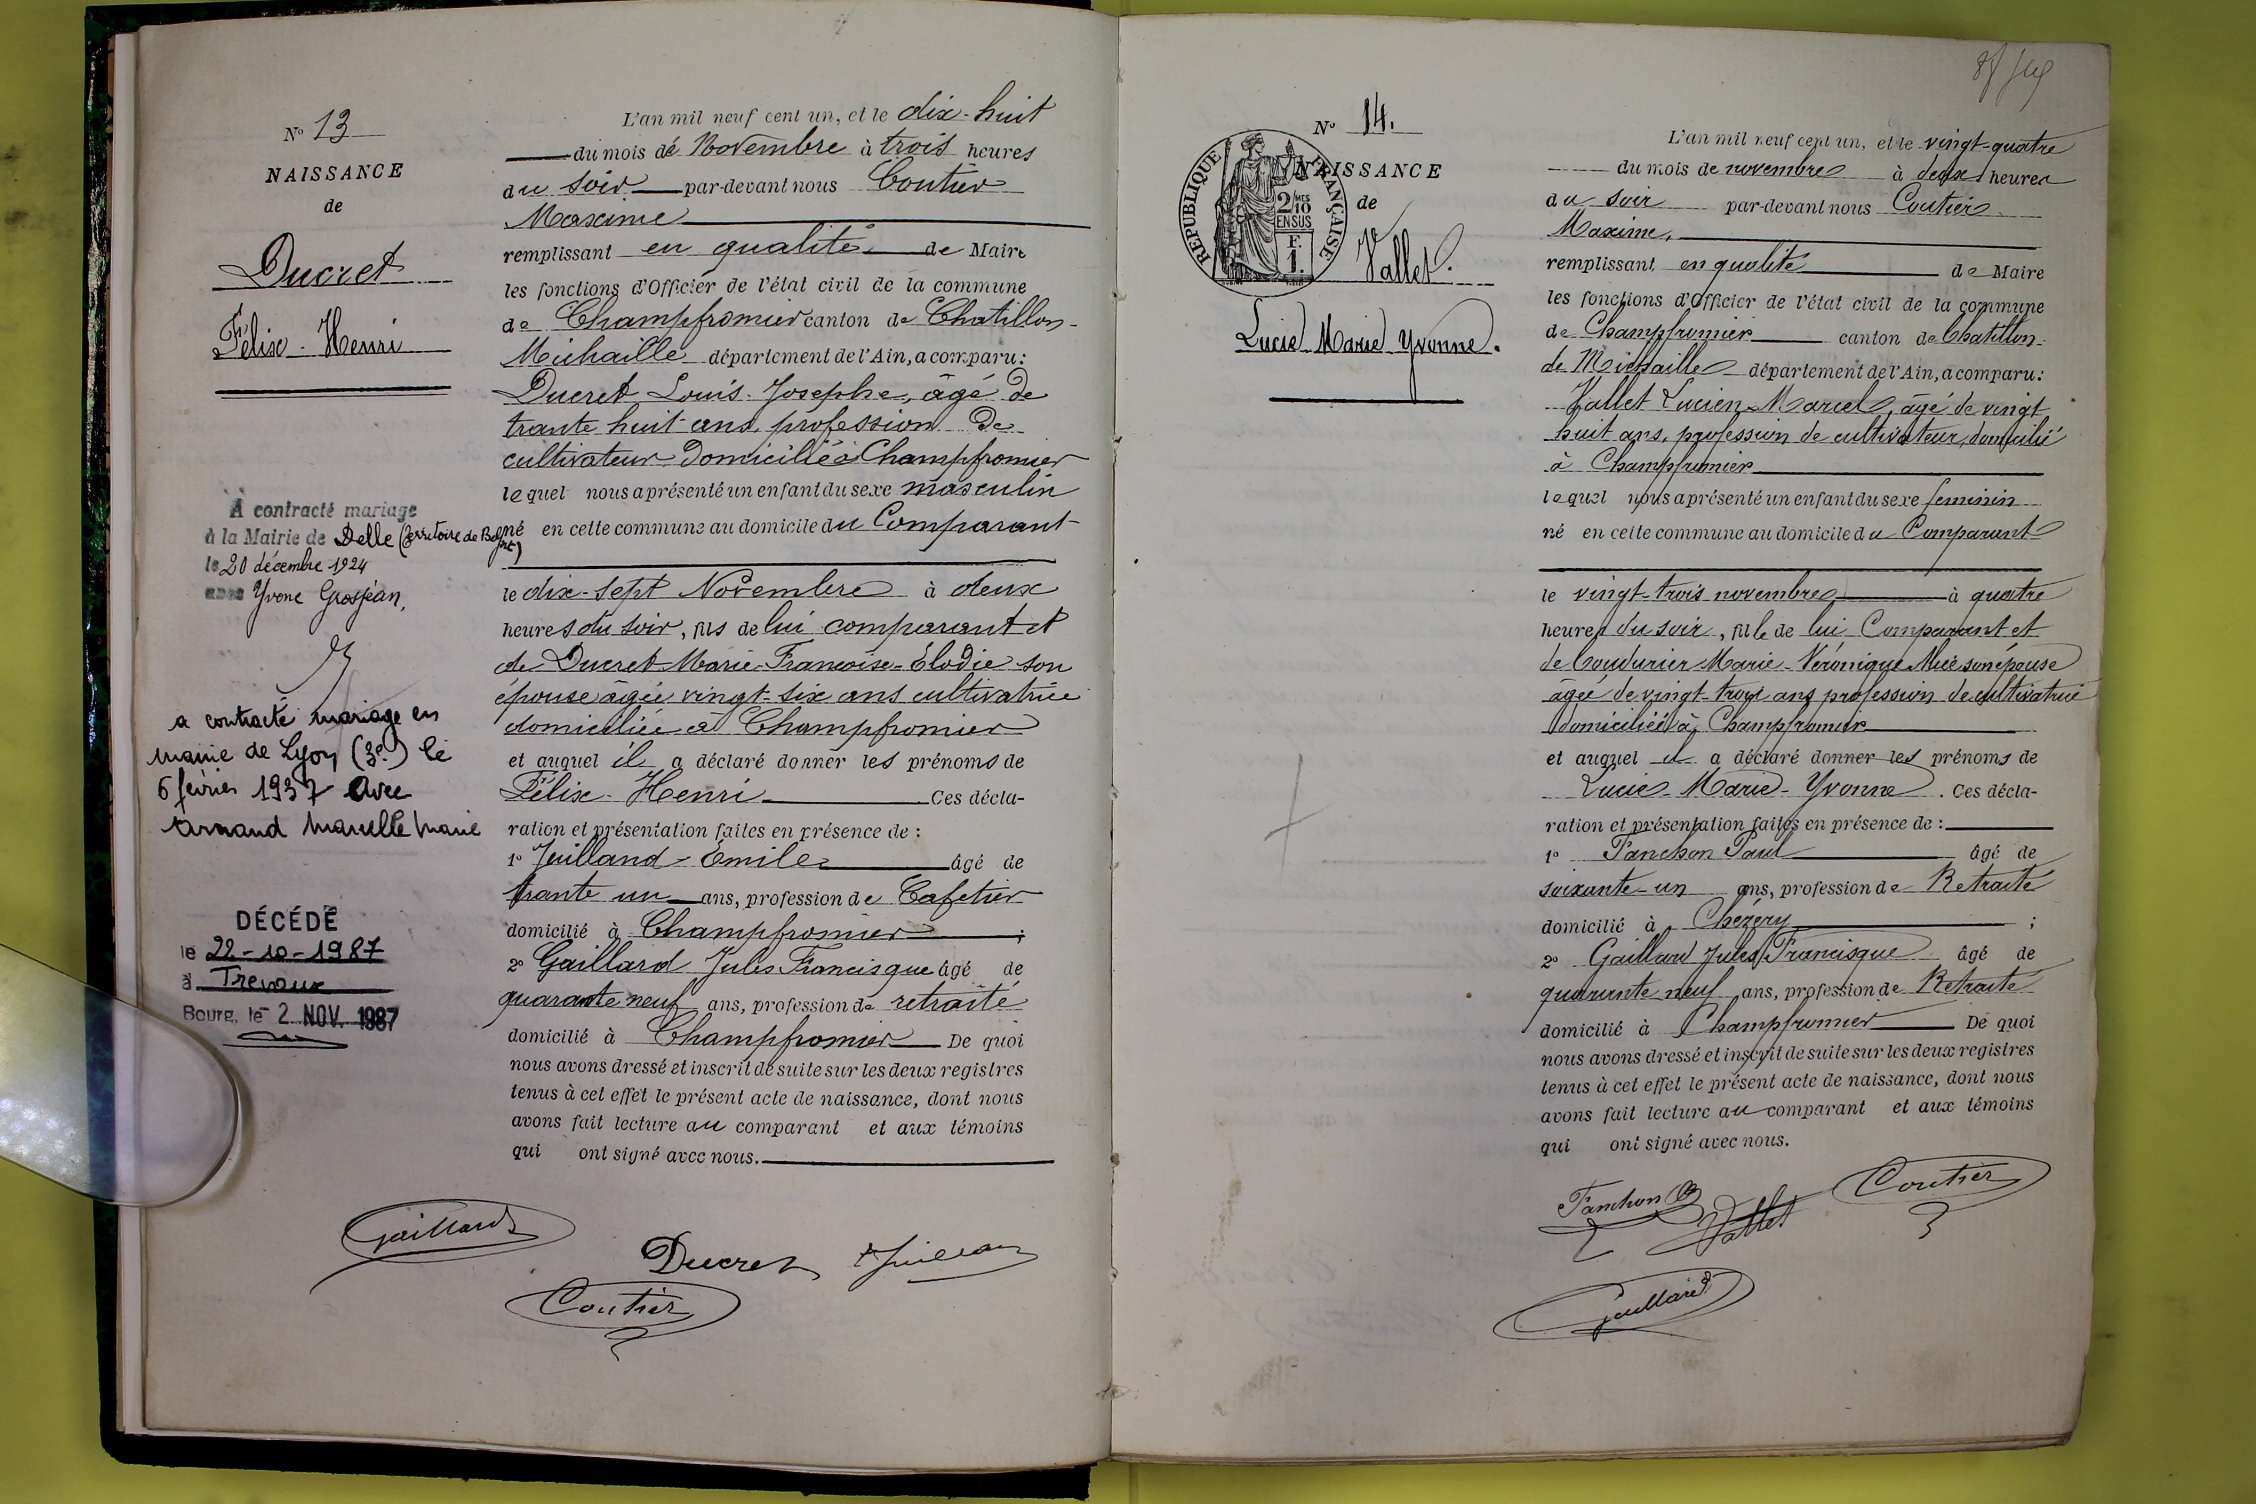 N° 13
NAISSANCE
de
Ducret
Félix-Henri
A contracté mariage
à la Mairie de Delle (Territoire de Belfort)
le 20 décembre 1924
avec Yvone Grosjean,
a contracté mariage en
mairie de Lyon (3e) le
6 février 1937 avec
Armand Marcelle Marie
DÉCÉDÉ
le 22-10-1987
à Trevoux
Bourg, le - 2 NOV. 1987
L'an mil neuf cent un, et le dix-huit
du mois de Novembre à trois heures
du soir par-devant nous Coutier
Maxime
remplissant en qualité de Maire
les fonctions d'Officier de l'état civil de la commune
de Champfromier canton de Chatillon-
Michaille département de l'Ain, a comparu:
Ducret Louis-Josephe, âgé de
trante huit ans, profession de
cultivateur domicilié à Champfromier
lequel nous a présenté un enfant du sexe masculin
né en cette commune au domicile du Comparant
le dix-sept Novembre à deux
heures du soir, fils de lui comparant et
de Ducret Marie-Francoise-Élodie son
épouse âgée vingt-six ans cultivatrice
domiciliée à Champfromier
et auquel il a déclaré donner les prénoms de
Félix-Henri Ces décla-
ration et présentation faites en présence de :
1° Juilland-Émile âgé de
trante un ans, profession de Cafetier
domicilié à Champfromier ;
2° Gaillard Jules Francisque âgé de
quarante neuf ans, profession de retraité
domicilié à Champfromier De quoi
nous avons dressé et inscrit de suite sur les deux registres
tenus à cet effet le présent acte de naissance, dont nous
avons fait lecture au comparant et aux témoins
qui ont signé avec nous.
Gaillard
Ducret
Coutier
N° 14.
NAISSANCE
de
Vallet.
Lucie Marie Yvonne.
REPUBLIQUE FRANÇAISE
2 MES
10
EN SUS
F.
1.
L'an mil neuf cent un, et le vingt-quatre
du mois de novembre à deux heures
du soir par-devant nous Coutier
Maxime,
remplissant en qualité de Maire
les fonctions d'Officier de l'état civil de la commune
de Champfromier canton de Chatillon-
de Michaille département de l'Ain, a comparu:
Vallet Lucien-Marcel, âgé de vingt
huit ans, profession de cultivateur, domicilié
à Champfromier
lequel nous a présenté un enfant du sexe feminin
né en cette commune au domicile du Comparant
le vingt-trois novembre à quatre
heures du soir, fille de lui Comparant et
de Coudurier Marie-Véronique Alice son épouse
âgée de vingt-trois ans profession de cultivatrice
domiciliée à Champfromier
et auquel il a déclaré donner les prénoms de
Lucie-Marie-Yvonne. Ces décla-
ration et présentation faites en présence de :
1° Tanchon Paul âgé de
soixante-un ans, profession de Retraité
domicilié à Chézery ;
2° Gaillard Jules Francisque âgé de
quarante neuf ans, profession de Retraité
domicilié à Champfromier De quoi
nous avons dressé et inscrit de suite sur les deux registres
tenus à cet effet le présent acte de naissance, dont nous
avons fait lecture au comparant et aux témoins
qui ont signé avec nous.
Tanchon
Vallet
Coutier
Gaillard